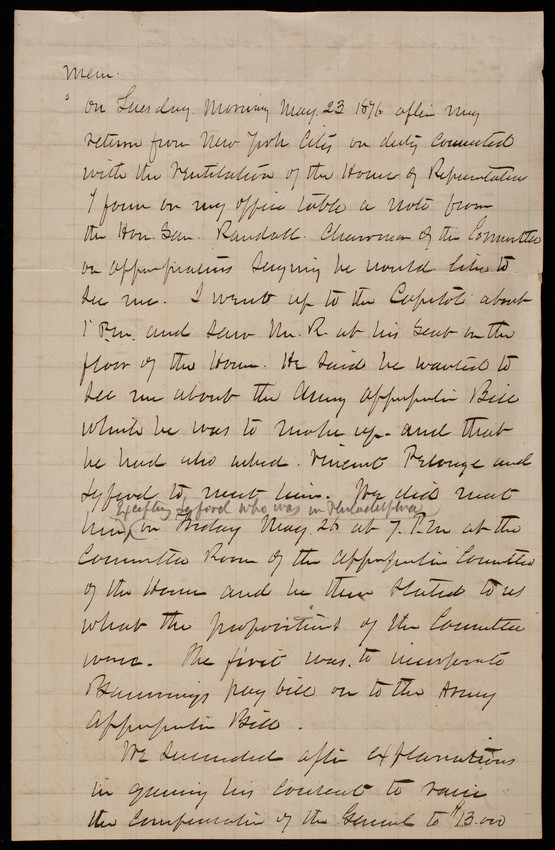 Mem.
On Tuesday Morning May 23 1876 after my
return from New York City on duty connected
with the Ventilation of the House of Representatives
I found on my office table a note from
the Hon Sam. Randall. Chairman of the Committee
on appropriations saying he would like to
see me. I went up to the Capitol about
1 P.m. and saw Mr. R. at his seat on the
floor of the House. He said he wanted to
see me about the Army appropriation Bill
which he was to make up. and that
he had also asked. Vincent Pelouze and
Lyford to meet him. We did meet
Excepting Lyford who was in Philadelphia
him, on Friday May 26 at 7. P.m at the
Committee Room of the appropriation Committee
of the House and he then stated to us
what the propositions of the Committee
were. The first was. to incorporate
Bannings pay bill on to the Army
appropriation Bill.
We succeeded after explanations
in gaining his consent to raise
the compensation of the General to $13.000